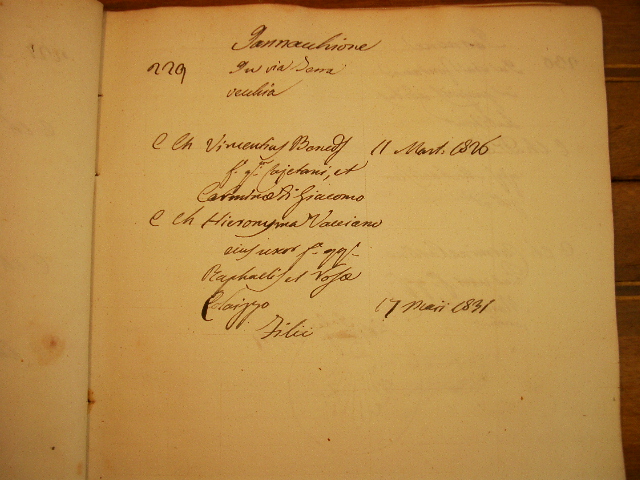 Iannacchione
229 In via Terra
vecchia
C Ch Vincentius Bened. 11 Mart. 1826
f. q.m Cajetani, et
Carminæ Di Giacomo
C Ch Hieronyma Vacciano
ejus uxor f. qq.
Raphaelis et Rosæ
17 Maii 1831
Filii